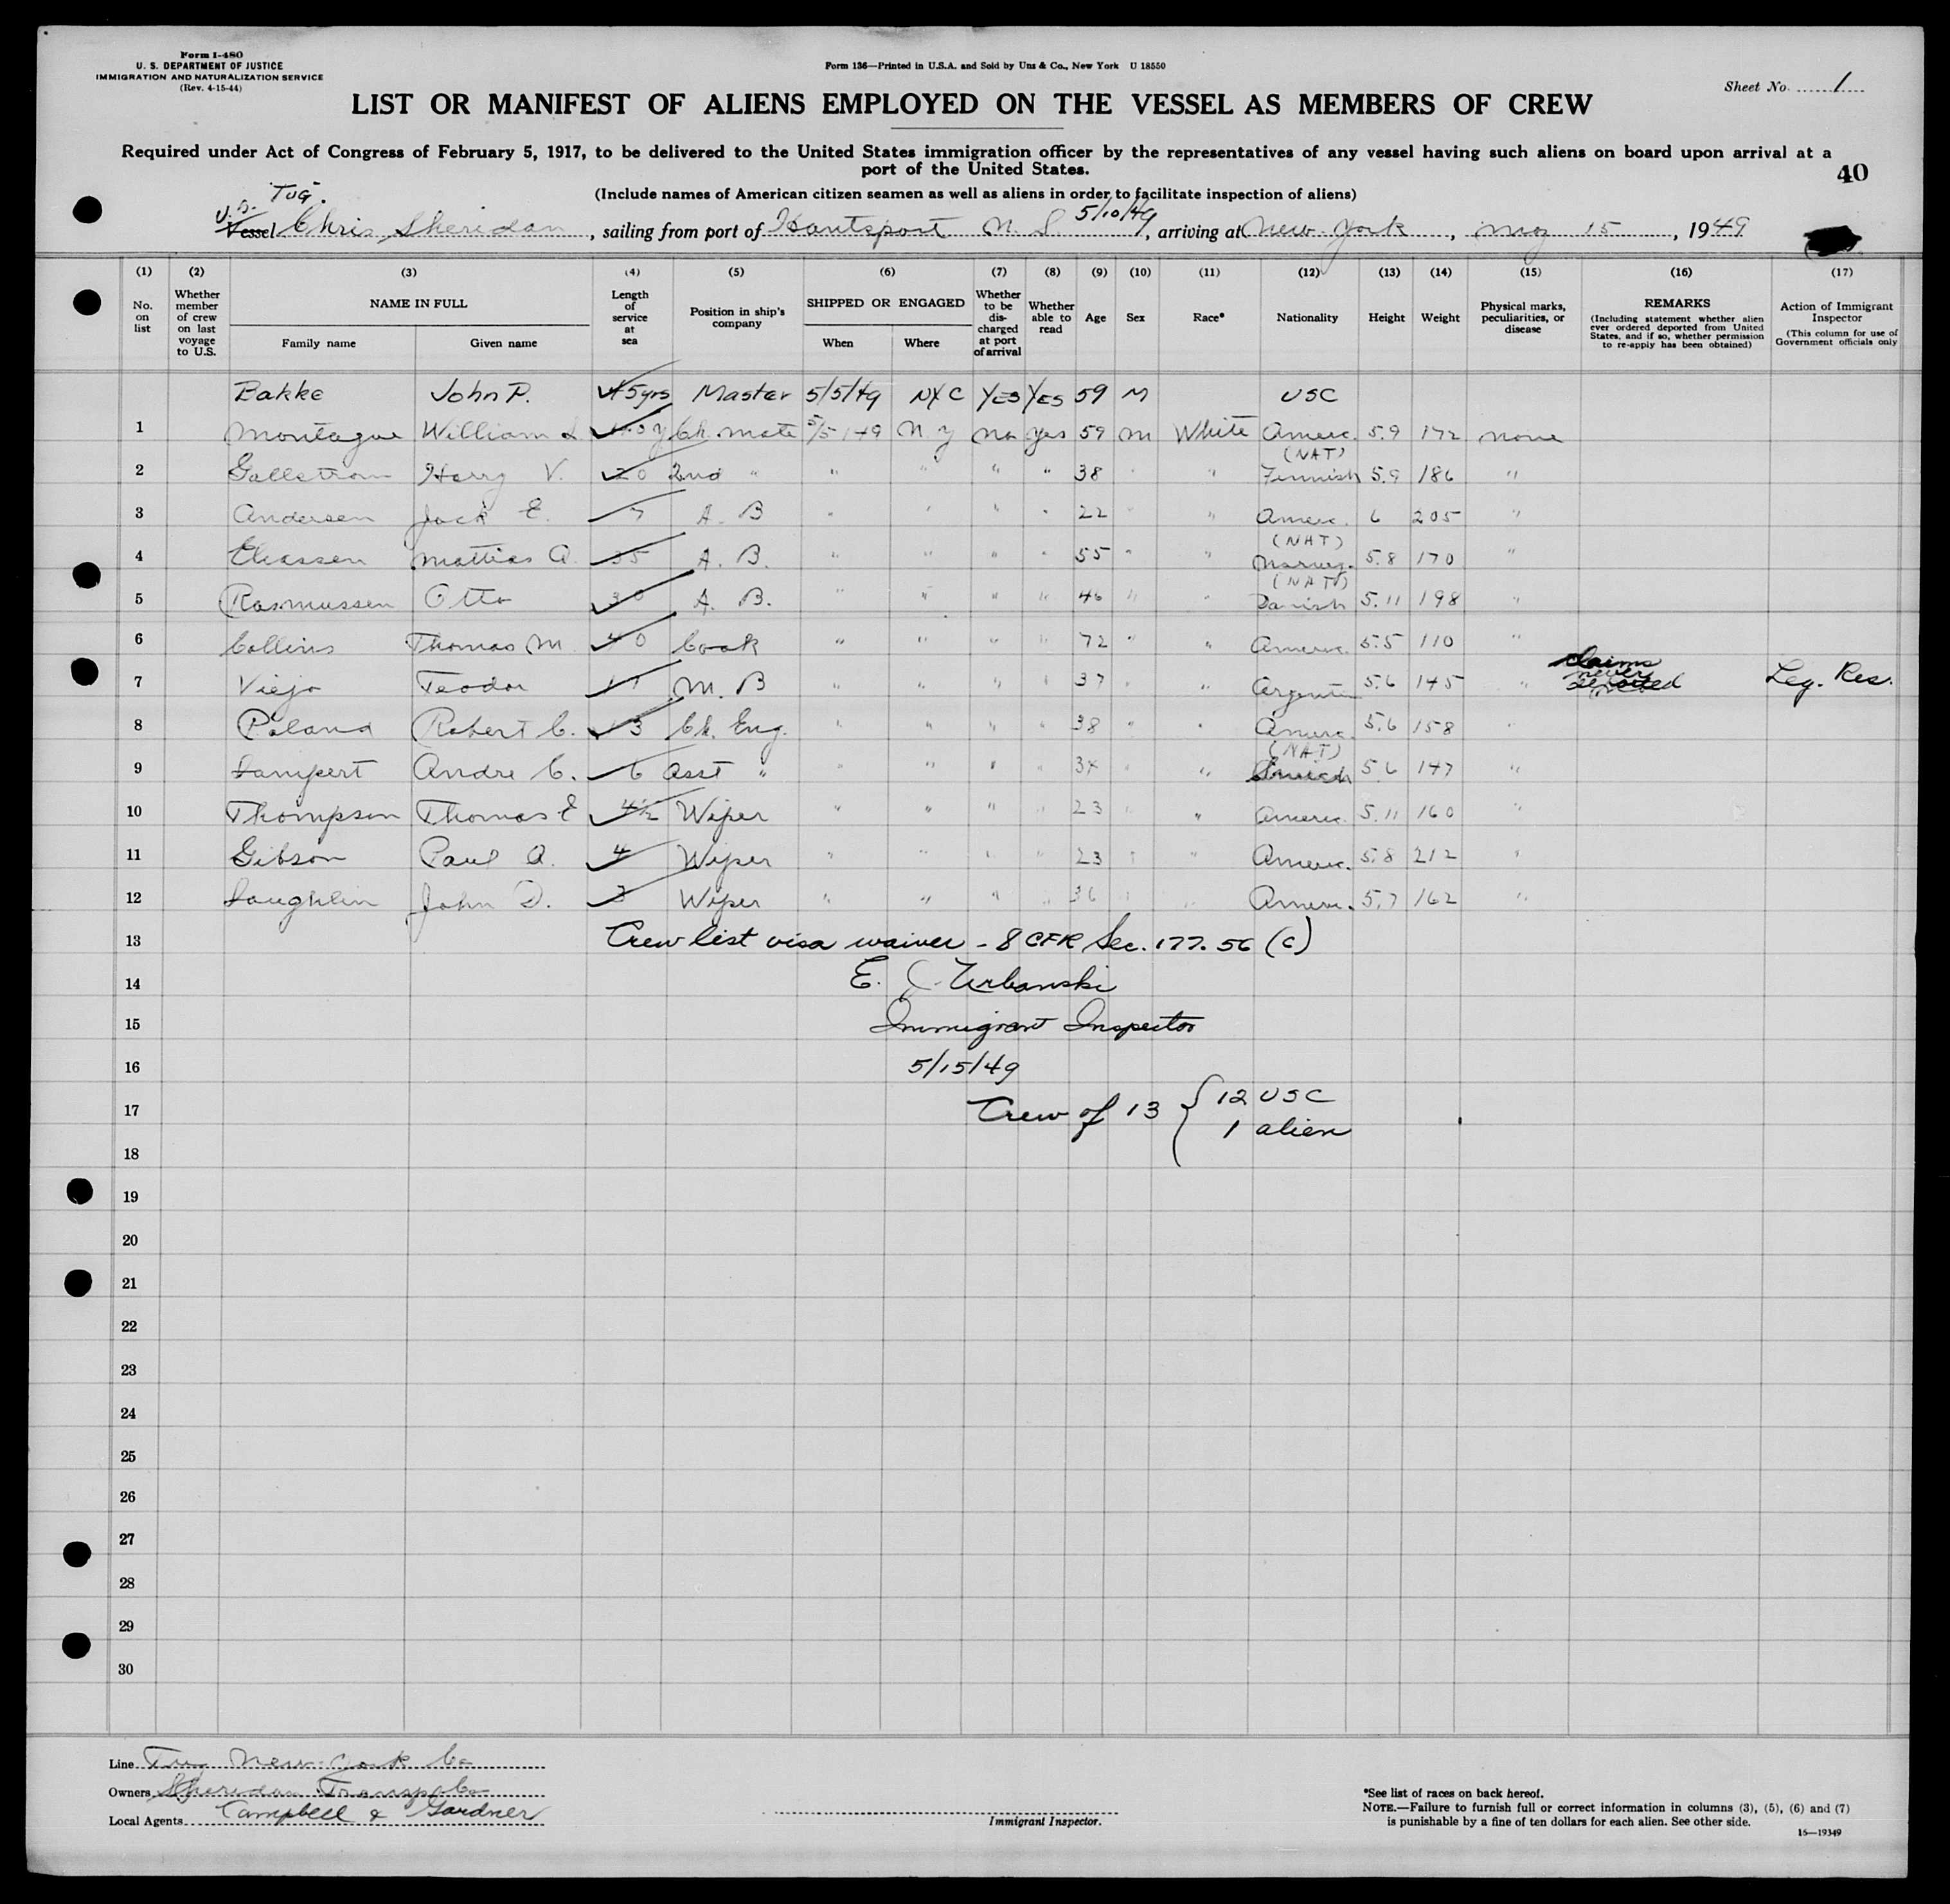 Form I-480
U. S. DEPARTMENT OF JUSTICE
IMMIGRATION AND NATURALIZATION SERVICE
(Rev. 4-15-44)
Form 136—Printed in U.S.A. and Sold by Unz & Co., New York U 18550
Sheet No. 1
LIST OR MANIFEST OF ALIENS EMPLOYED ON THE VESSEL AS MEMBERS OF CREW
Required under Act of Congress of February 5, 1917, to be delivered to the United States immigration officer by the representatives of any vessel having such aliens on board upon arrival at a
port of the United States.
40
(Include names of American citizen seamen as well as aliens in order to facilitate inspection of aliens)
U.S. TUG.
Vessel Chris Sheridan, sailing from port of Hantsport N. S. 5/10/49, arriving at New York, May 15, 1949
(1) (2) (3) (4) (5) (6) (7) (8) (9) (10) (11) (12) (13) (14) (15) (16) (17)
No. on list
Whether member of crew on last voyage to U.S.
NAME IN FULL
Family name
Given name
Length of service at sea
Position in ship's company
SHIPPED OR ENGAGED
When
Where
Whether to be discharged at port of arrival
Whether able to read
Age
Sex
Race*
Nationality
Height
Weight
Physical marks, peculiarities, or disease
REMARKS
(Including statement whether alien ever ordered deported from United States, and if so, whether permission to re-apply has been obtained)
Action of Immigrant Inspector
(This column for use of Government officials only
Bakke John P. 45yrs Master 5/5/49 NYC YES YES 59 M USC
1 Montague William L Ch. mate 5/5/49 N.Y no yes 59 m White Americ. 5.9 172 none
2 Gallstrom Harry V. 20 2nd " " " " " 38 " " (NAT) Finnish 5.9 186 "
3 Andersen Jack E. 7 A. B " " " " 22 " " Americ. 6 205 "
4 Eliassen Mattias A. 35 A. B. " " " " 55 " " (NAT) Norweg. 5.8 170 "
5 Rasmussen Otto 30 A. B. " " " " 46 " " (NAT) Danish 5.11 198 "
6 Collins Thomas M. 40 Cook " " " " 72 " " Americ. 5.5 110 "
7 Viejo Teodor 17 M. B " " " " 37 " " Argentin 5.6 145 " claims never deported Leg. Res.
8 Poland Robert C. 13 Ch. Eng. " " " " 38 " " Americ. 5.6 158 "
9 Lampert Andre C. 6 Asst " " " " " 34 " " (NAT) 5.6 147 "
10 Thompson Thomas E 4½ Wiper " " " " 23 " " Americ. 5.11 160 "
11 Gibson Paul A. 4 Wiper " " " " 23 " " Americ. 5.8 212 "
12 Laughlin John D. 3 Wiper " " " " 36 " " Americ. 5.7 162 "
13 Crew list visa waiver - 8 CFR Sec. 177.56 (c)
14 E. C. Urbanski
15 Immigrant Inspector
16 5/15/49
17 Crew of 13 { 12 USC
1 alien
18
19
20
21
22
23
24
25
26
27
28
29
30
Line Tug New York Co
Owners Sheridan Transp Co
Local Agents Campbell & Gardner
Immigrant Inspector.
*See list of races on back hereof.
NOTE.—Failure to furnish full or correct information in columns (3), (5), (6) and (7)
is punishable by a fine of ten dollars for each alien. See other side.
16—19349